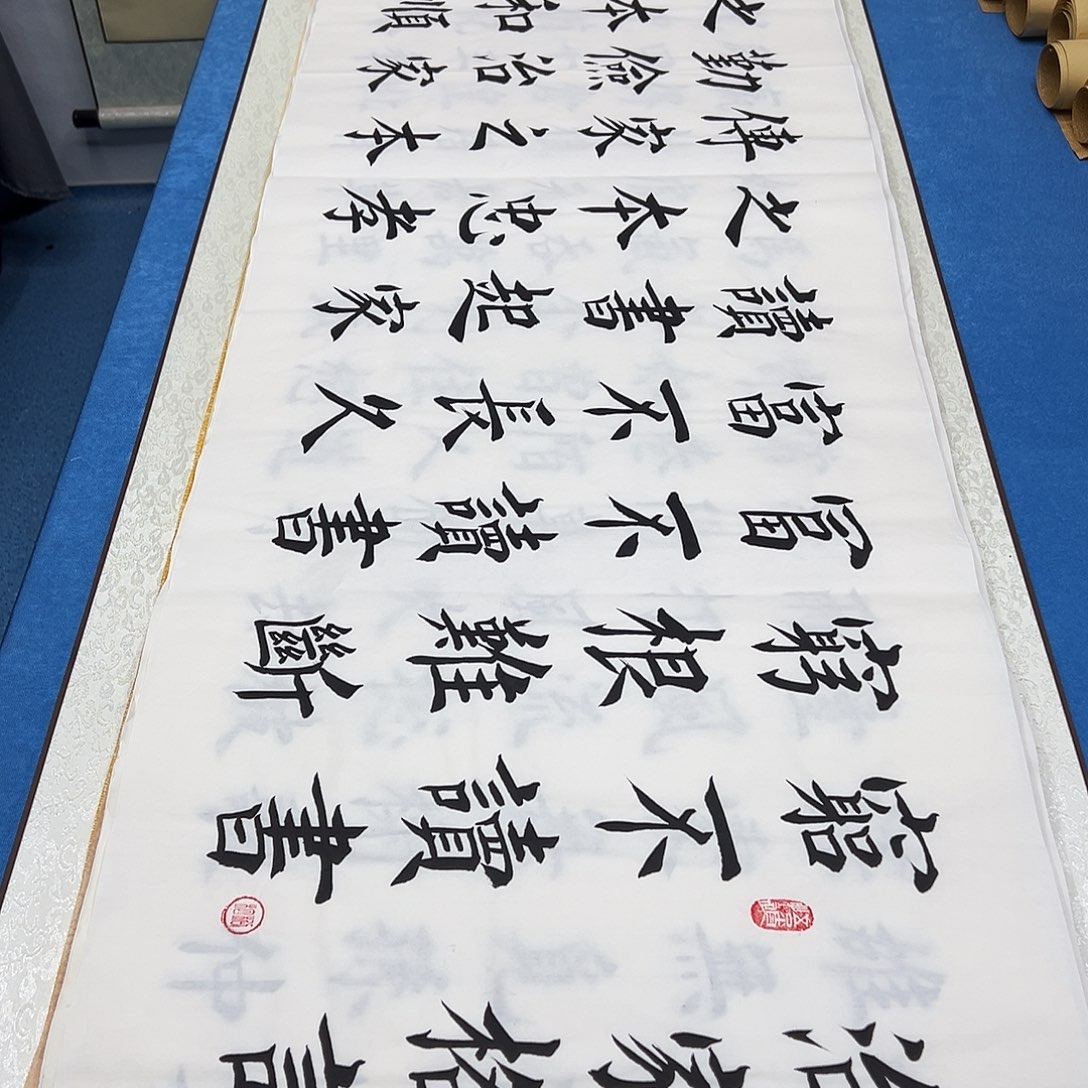 治家格言
竆不讀書
窮根難斷
冨不讀書
富不長久
讀書起家
之本忠孝
傳家之本
勤儉治家
之本和順